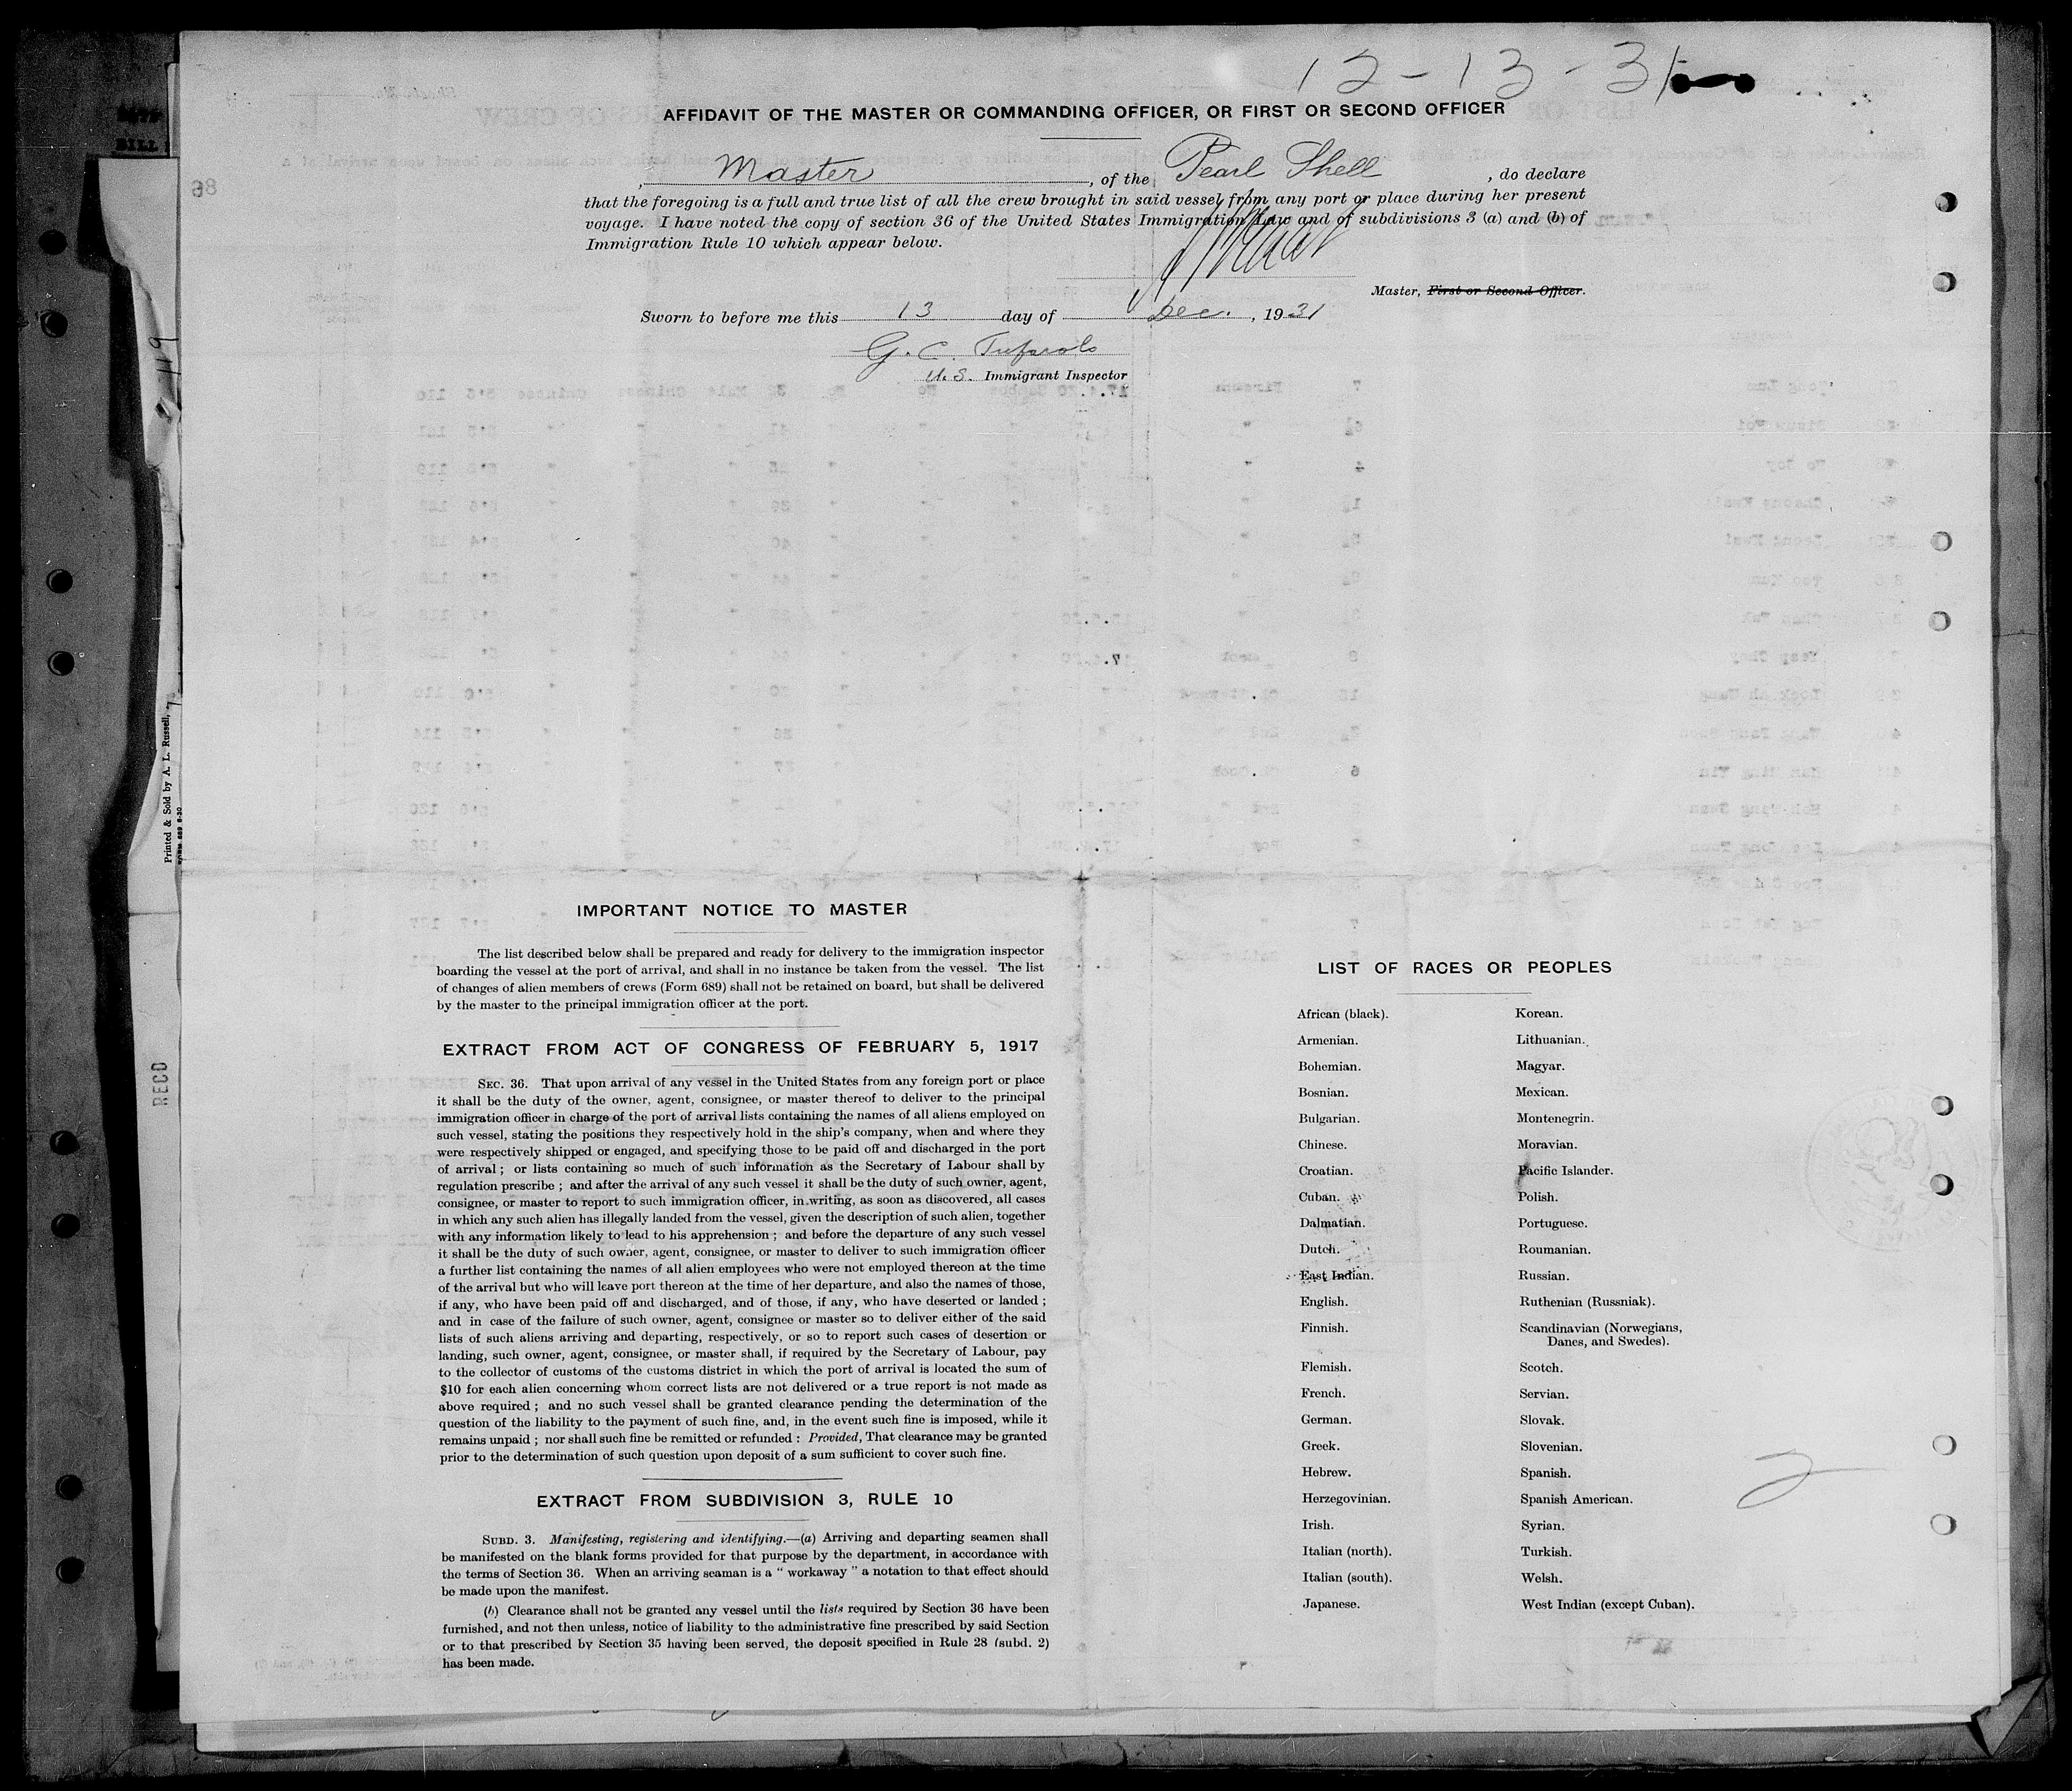 12-13-31
AFFIDAVIT OF THE MASTER OR COMMANDING OFFICER, OR FIRST OR SECOND OFFICER
, Master , of the Pearl Shell , do declare
that the foregoing is a full and true list of all the crew brought in said vessel from any port or place during her present
voyage. I have noted the copy of section 36 of the United States Immigration Law and of subdivisions 3 (a) and (b) of
Immigration Rule 10 which appear below.
Master, First or Second Officer.
Sworn to before me this 13 day of Dec. , 1931
G. C.
U.S. Immigrant Inspector
IMPORTANT NOTICE TO MASTER
The list described below shall be prepared and ready for delivery to the immigration inspector
boarding the vessel at the port of arrival, and shall in no instance be taken from the vessel. The list
of changes of alien members of crews (Form 689) shall not be retained on board, but shall be delivered
by the master to the principal immigration officer at the port.
EXTRACT FROM ACT OF CONGRESS OF FEBRUARY 5, 1917
SEC. 36. That upon arrival of any vessel in the United States from any foreign port or place
it shall be the duty of the owner, agent, consignee, or master thereof to deliver to the principal
immigration officer in charge of the port of arrival lists containing the names of all aliens employed on
such vessel, stating the positions they respectively hold in the ship's company, when and where they
were respectively shipped or engaged, and specifying those to be paid off and discharged in the port
of arrival ; or lists containing so much of such information as the Secretary of Labour shall by
regulation prescribe ; and after the arrival of any such vessel it shall be the duty of such owner, agent,
consignee, or master to report to such immigration officer, in writing, as soon as discovered, all cases
in which any such alien has illegally landed from the vessel, given the description of such alien, together
with any information likely to lead to his apprehension ; and before the departure of any such vessel
it shall be the duty of such owner, agent, consignee, or master to deliver to such immigration officer
a further list containing the names of all alien employees who were not employed thereon at the time
of the arrival but who will leave port thereon at the time of her departure, and also the names of those,
if any, who have been paid off and discharged, and of those, if any, who have deserted or landed ;
and in case of the failure of such owner, agent, consignee or master so to deliver either of the said
lists of such aliens arriving and departing, respectively, or so to report such cases of desertion or
landing, such owner, agent, consignee, or master shall, if required by the Secretary of Labour, pay
to the collector of customs of the customs district in which the port of arrival is located the sum of
$10 for each alien concerning whom correct lists are not delivered or a true report is not made as
above required ; and no such vessel shall be granted clearance pending the determination of the
question of the liability to the payment of such fine, and, in the event such fine is imposed, while it
remains unpaid ; nor shall such fine be remitted or refunded : Provided, That clearance may be granted
prior to the determination of such question upon deposit of a sum sufficient to cover such fine.
EXTRACT FROM SUBDIVISION 3, RULE 10
SUBD. 3. Manifesting, registering and identifying.—(a) Arriving and departing seamen shall
be manifested on the blank forms provided for that purpose by the department, in accordance with
the terms of Section 36. When an arriving seaman is a " workaway " a notation to that effect should
be made upon the manifest.
(b) Clearance shall not be granted any vessel until the lists required by Section 36 have been
furnished, and not then unless, notice of liability to the administrative fine prescribed by said Section
or to that prescribed by Section 35 having been served, the deposit specified in Rule 28 (subd. 2)
has been made.
LIST OF RACES OR PEOPLES
African (black).
Armenian.
Bohemian.
Bosnian.
Bulgarian.
Chinese.
Croatian.
Cuban.
Dalmatian.
Dutch.
East Indian.
English.
Finnish.
Flemish.
French.
German.
Greek.
Hebrew.
Herzegovinian.
Irish.
Italian (north).
Italian (south).
Japanese.
Korean.
Lithuanian.
Magyar.
Mexican.
Montenegrin.
Moravian.
Pacific Islander.
Polish.
Portuguese.
Roumanian.
Russian.
Ruthenian (Russniak).
Scandinavian (Norwegians,
Danes, and Swedes).
Scotch.
Servian.
Slovak.
Slovenian.
Spanish.
Spanish American.
Syrian.
Turkish.
Welsh.
West Indian (except Cuban).
2
Printed & Sold by A. L. Russell,
RECD